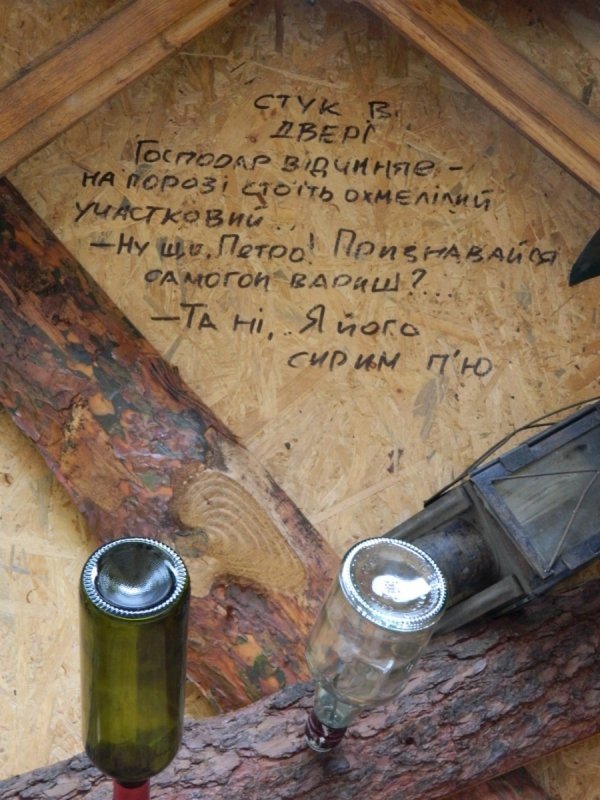 СТУК В
ДВЕРІ
ГОСПОДАР ВІДЧИНЯЄ –
НА ПОРОЗІ СТОЇТЬ ОХМЕЛІЛИЙ
УЧАСТКОВИЙ...
– НУ ЩО, ПЕТРО! ПРИЗНАВАЙСЯ
САМОГОН ВАРИШ?...
– ТА НІ, .. Я ЙОГО
СИРИМ П'Ю